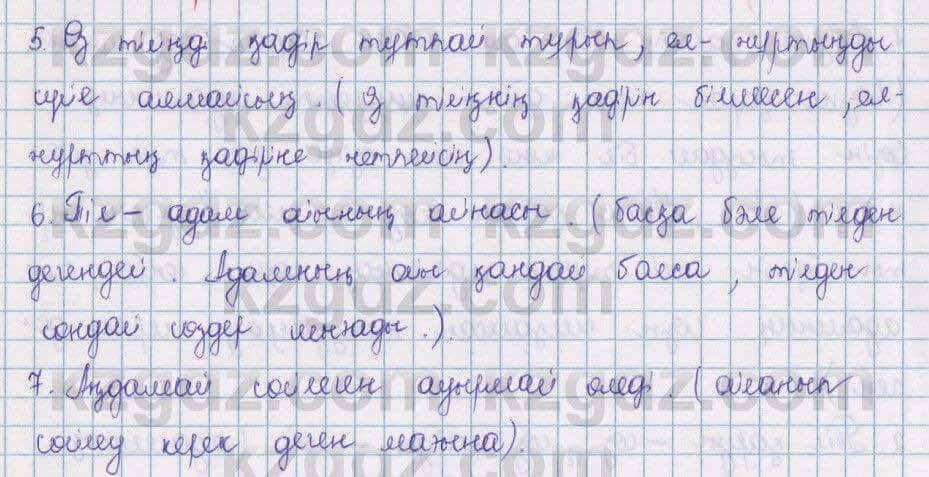 5. Өз тіліңді қадір тұтпай тұрып, ел-жұртыңды
сүйе алмайсың. (Өз тіліңнің қадірін білмесең, ел-
жұрттың қадіріне жетпейсің).
6. Тіл – адам ойының айнасы. (басқа бәле тілден
дегендей. Адамның ойы қандай болса, тілден
сондай сөздер шығады.).
7. Аңдамай сөйлеген ауырмай өледі. (ойланып
сөйлеу керек деген мағына).
kzgdz.com